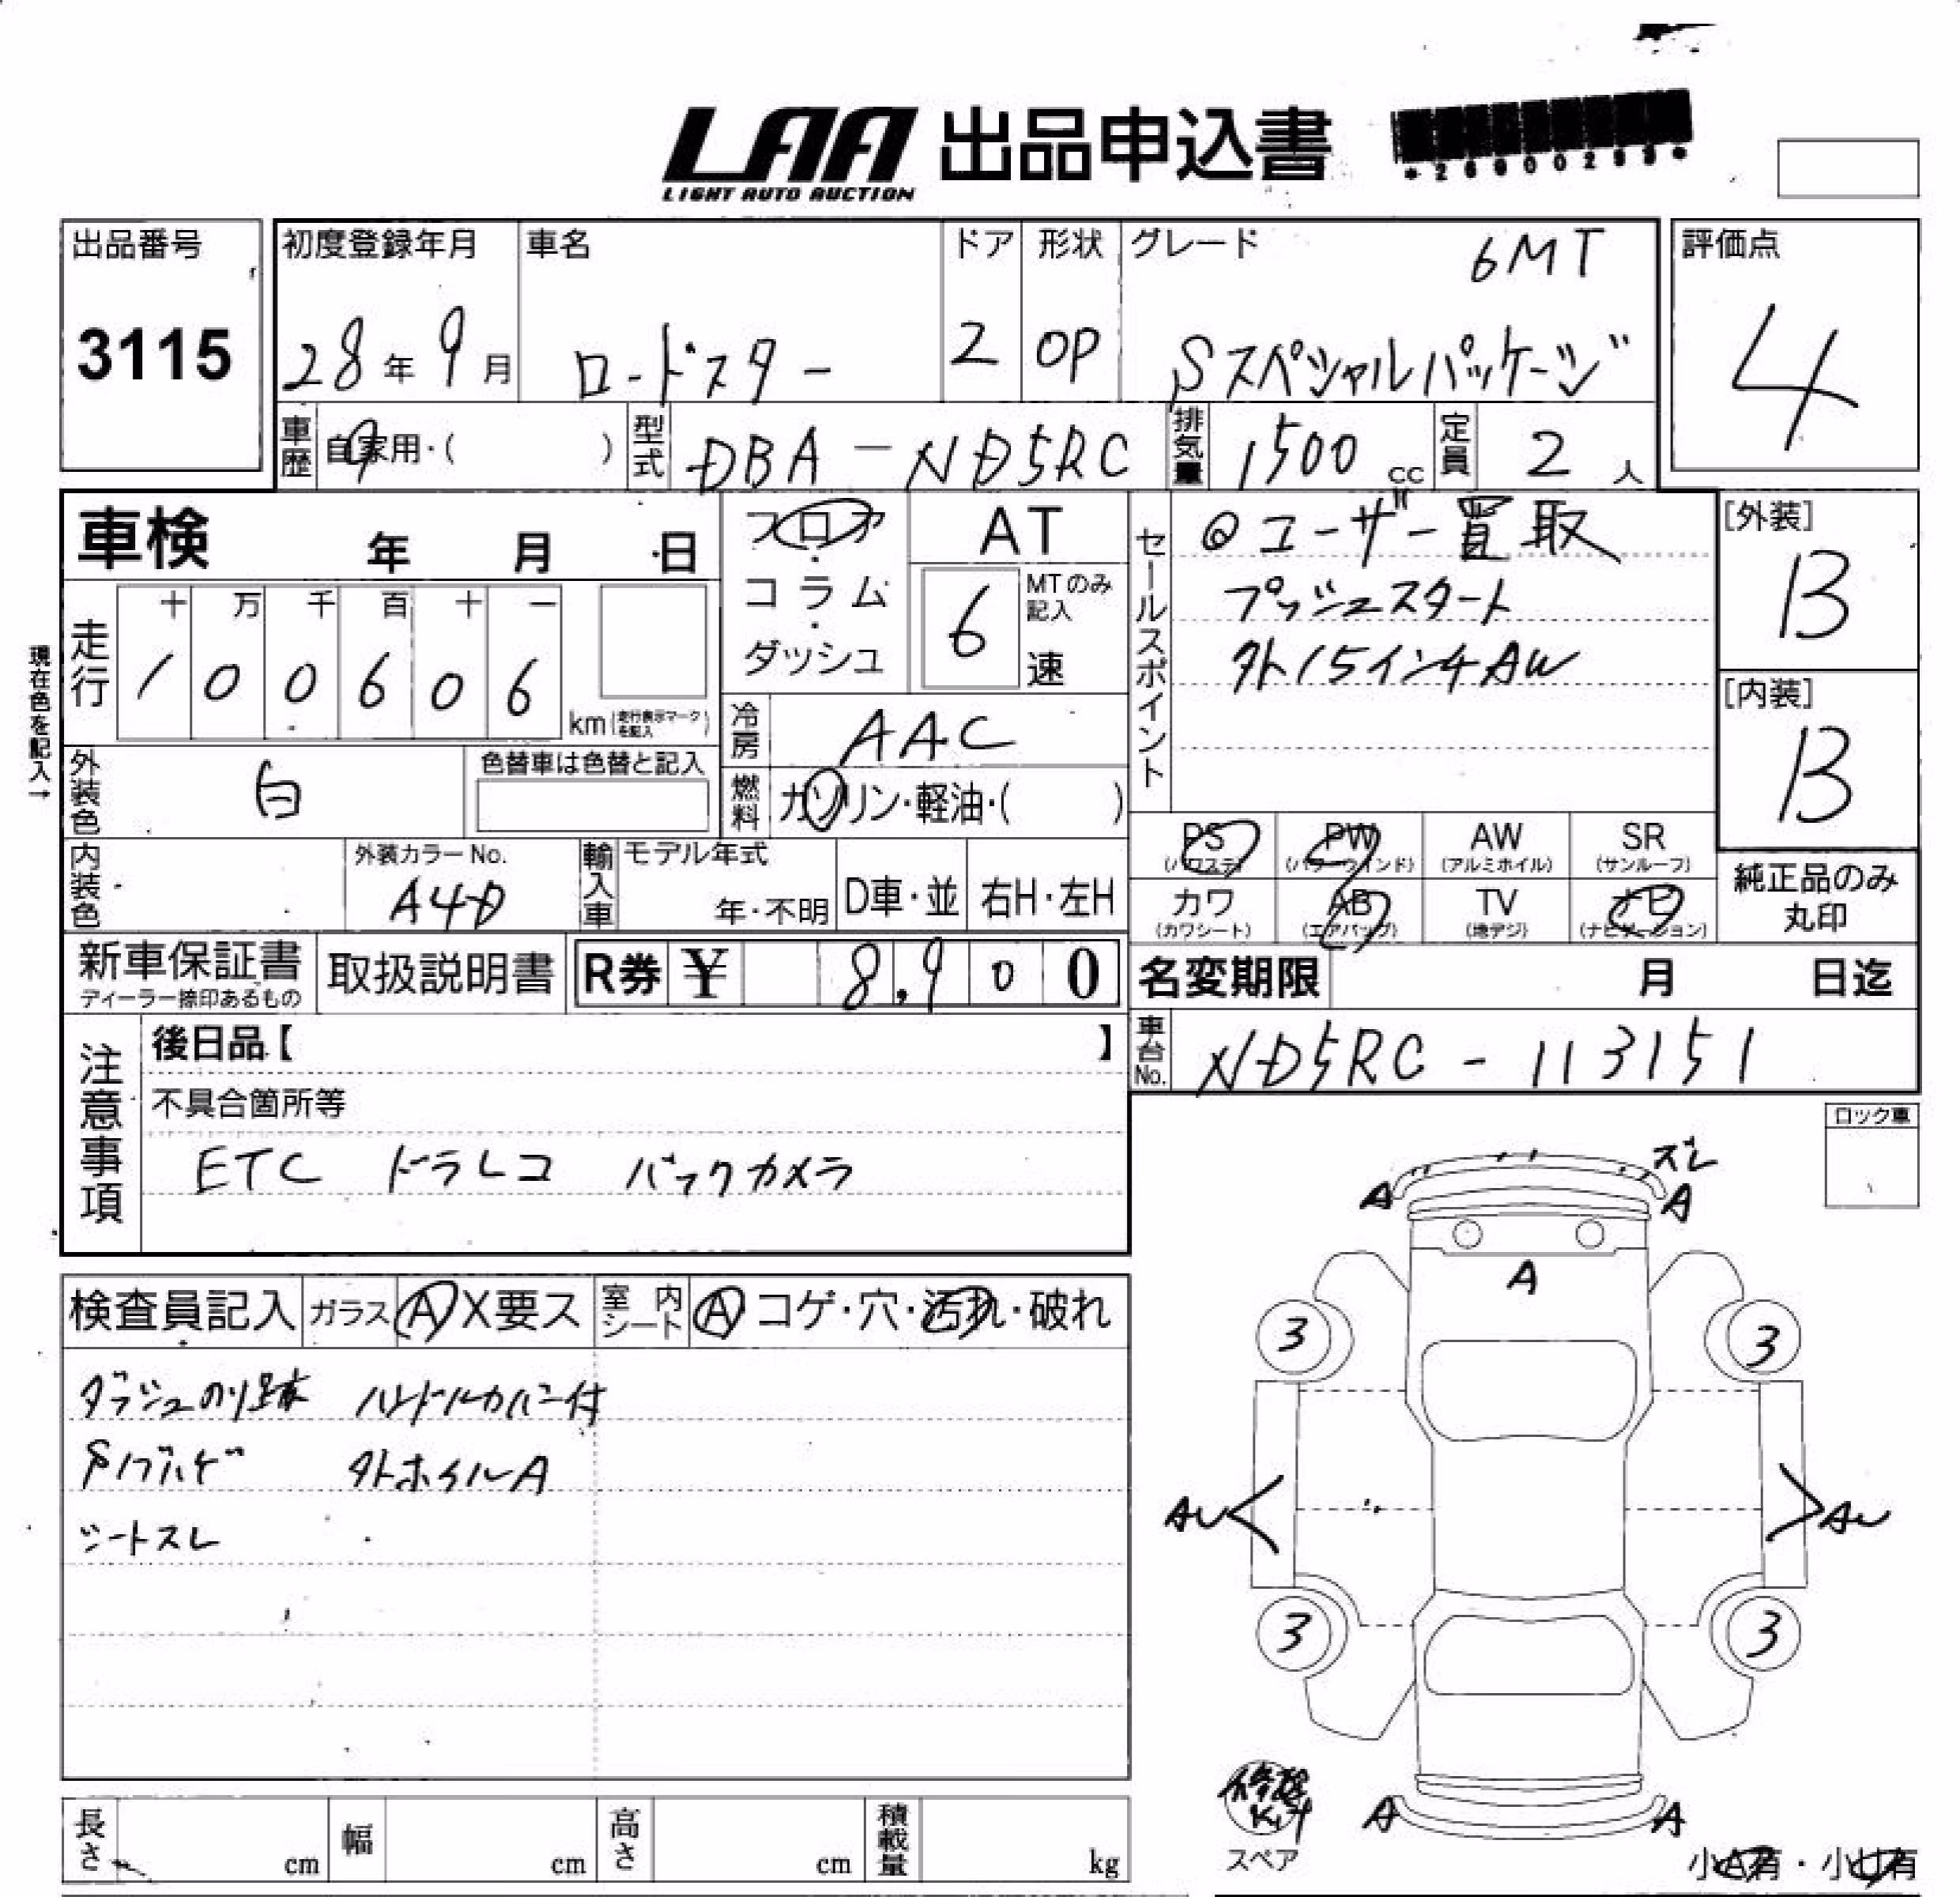 LAA 出品申込書
LIGHT AUTO AUCTION
*26900293*
出品番号
3115
初度登録年月
28年9月
車名
ロードスター
ドア
2
形状
OP
グレード 6MT
Sスペシャルパッケージ
評価点
4
車歴 自家用・( )
型式 DBA-ND5RC
排気量 1500cc
定員 2人
車検 年 月 日
現在色を記入→
走行
十 万 千 百 十 一
1 0 0 6 0 6
km(走行表示マークを記入)
フロア・コラム・ダッシュ
AT
6 MTのみ記入 速
冷房 AAC
燃料 ガソリン・軽油・( )
セールスポイント
◎ユーザー買取
プッシュスタート
外15インチAW
[外装]
B
[内装]
B
外装色 白
色替車は色替と記入
内装色
外装カラーNo.
A4D
輸入車 モデル年式
年・不明
D車・並
右H・左H
PS(パワステ) PW(パワーウインド) AW(アルミホイル) SR(サンルーフ)
カワ(カワシート) AB(エアバッグ) TV(地デジ) ナビ(ナビゲーション)
純正品のみ丸印
新車保証書
ディーラー捺印あるもの
取扱説明書
R券 ¥ 8,900
名変期限 月 日迄
車台No. ND5RC-113151
注意事項
後日品【 】
不具合箇所等
ETC ドラレコ バックカメラ
ロック車
検査員記入
ガラス A X要ス
室内シート A コゲ・穴・汚れ・破れ
ダッシュのり跡 ハンドルカバー付
外ホイルA
シートスレ
ズレ
A A
A
3 3
AU AU
3 3
A A
修理Kit
スペア
小A有・小U有
長さ cm
幅 cm
高さ cm
積載量 kg